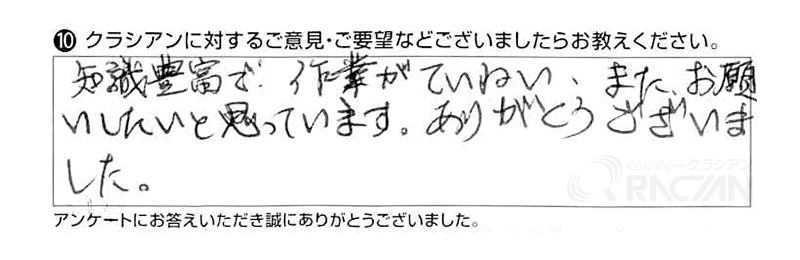 ⑩ クラシアンに対するご意見・ご要望などございましたらお教えください。
知識豊富で、作業がていねい、また、お願
いしたいと思っています。ありがとうございま
した。
くらし安心クラシアン
QRACIAN
アンケートにお答えいただき誠にありがとうございました。